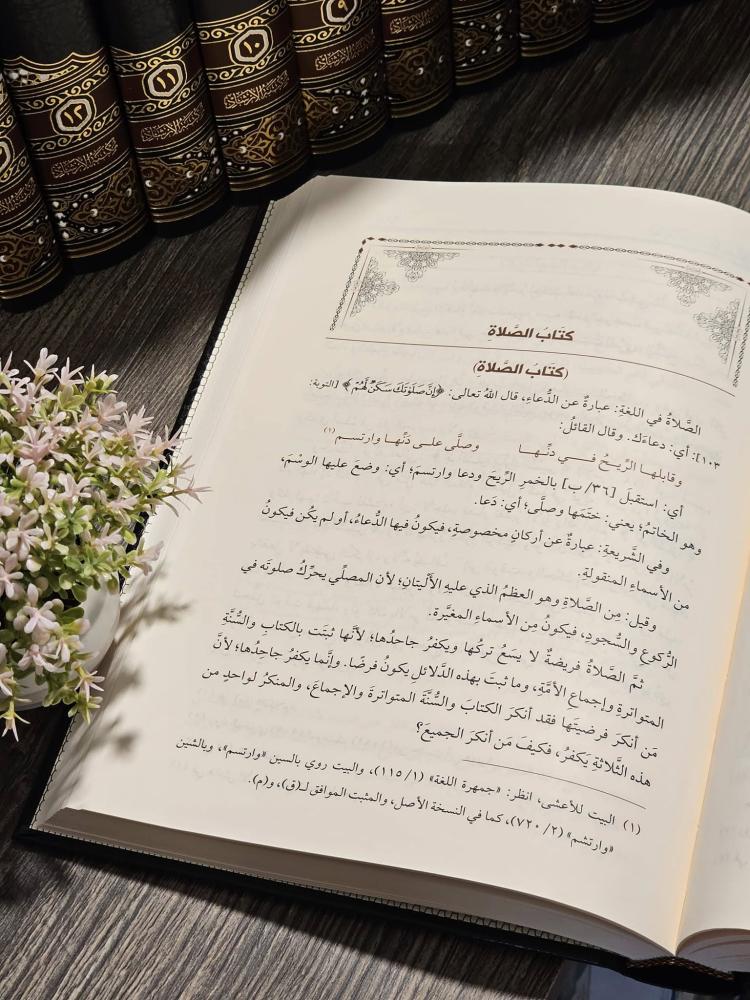 ١٢
١١
١٠
٩
مكتبة الإرشاد
مكتبة الإرشاد
مكتبة الإرشاد
مكتبة الإرشاد
كتَابُ الصَّلاةِ
(كتَابُ الصَّلاةِ)
الصَّلاةُ في اللغةِ: عبارةٌ عن الدُّعاءِ، قال اللهُ تعالى: ﴿إِنَّ صَلَوٰتَكَ سَكَنٌ لَّهُمْ﴾ [التوبة:
١٠٣]: أي: دعاءَك. وقال القائلُ:
وقابلهـا الرِّيـحُ فـــي دنِّـهـا وصلَّى علـى دَنِّـها وارتســم(١)
أي: استقبلَ [٣٦/ ب] بالخمرِ الرِّيحَ ودعا وارتسمَ؛ أي: وضعَ عليها الوسْمَ،
وهو الخاتمُ؛ يعني: ختَمَها وصلَّى؛ أي: دَعا.
وفي الشَّريعةِ: عبارةٌ عن أركانٍ مخصوصةٍ، فيكونُ فيها الدُّعاءُ، أو لم يكُن فيكونُ
من الأسماءِ المنقولةِ.
وقيل: مِن الصَّلاةِ وهو العظمُ الذي عليهِ الأَلْيتانِ؛ لأن المصلِّي يحرِّكُ صلوتَه في
الرُّكوعِ والسُّجودِ، فيكونُ مِن الأسماءِ المغيَّرة.
ثمَّ الصَّلاةُ فريضةٌ لا يسَعُ تركُها ويكفرُ جاحدُها؛ لأنَّها ثبتَت بالكتابِ والسُّنَّةِ
المتواترةِ وإجماعِ الأمَّةِ، وما ثبتَ بهذه الدَّلائلِ يكونُ فرضًا. وإنَّما يكفرُ جاحِدُها؛ لأنَّ
مَن أنكرَ فرضيتَها فقد أنكرَ الكتابَ والسُّنَّةَ المتواترةَ والإجماعَ، والمنكرُ لواحدٍ من
هذه الثَّلاثةِ يَكفرُ، فكيفَ مَن أنكرَ الجميعَ؟
(١) البيت للأعشى، انظر: «جمهرة اللغة» (١/ ١١٥)، والبيت روي بالسين «وارتسم»، وبالشين
«وارتشم» (٢/ ٧٢٠)، كما في النسخة الأصل، والمثبت الموافق لـ(ق)، و(م).